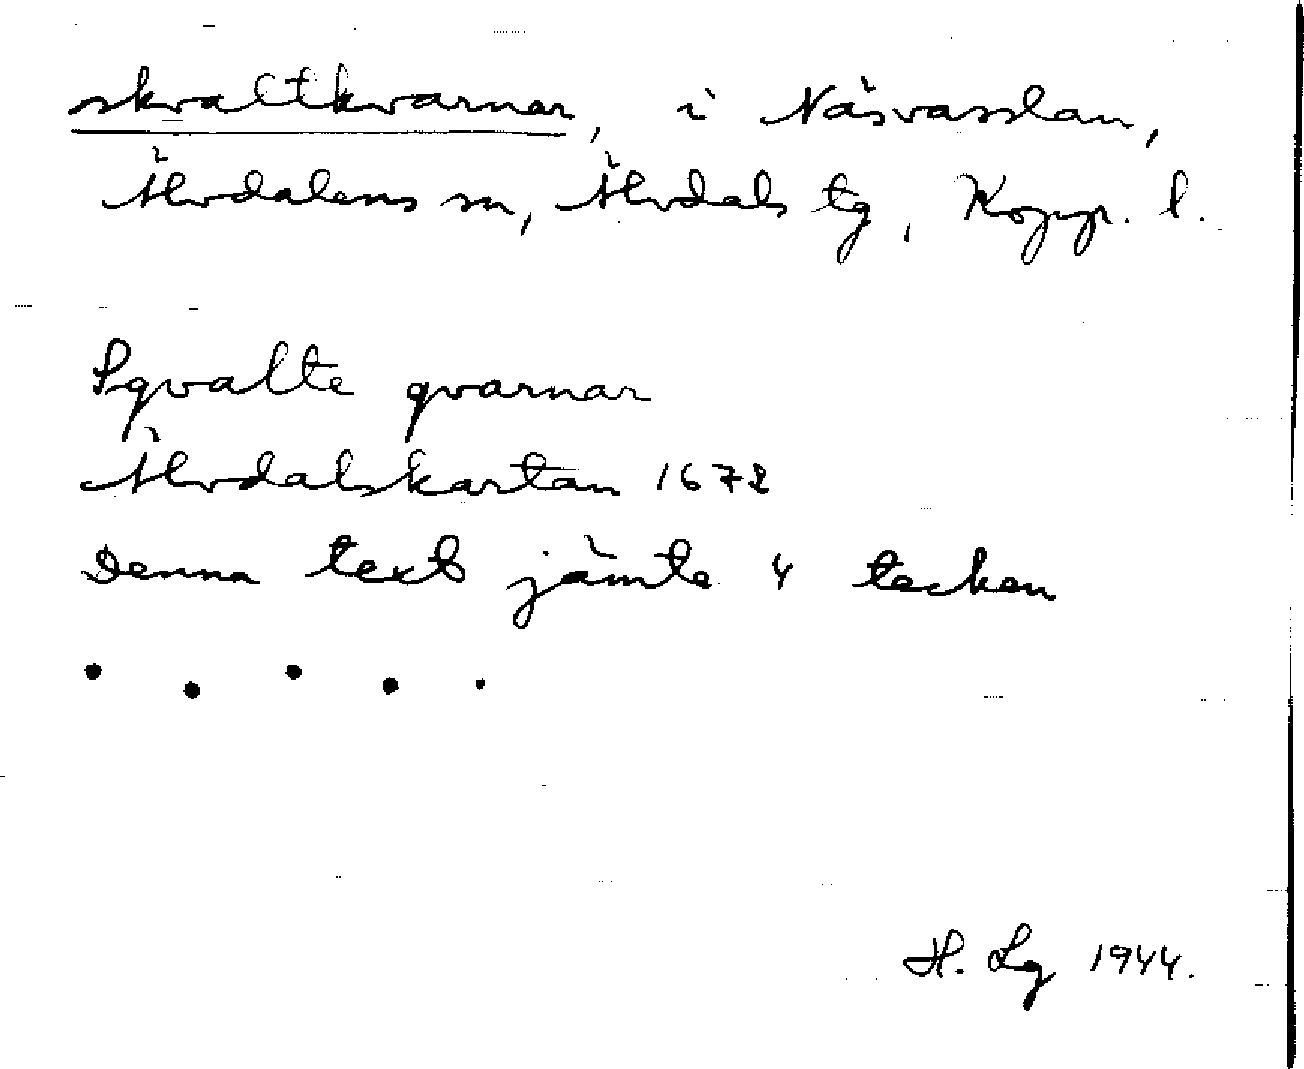 skvaltkvarnar, i Näsvasslan,
Älvdalens sn, Älvdals tg, Kopp. l.
Sqvalte qvarnar
Älvdalskartan 1672
Denna text jämte 4 tecken
H. Lg 1944.